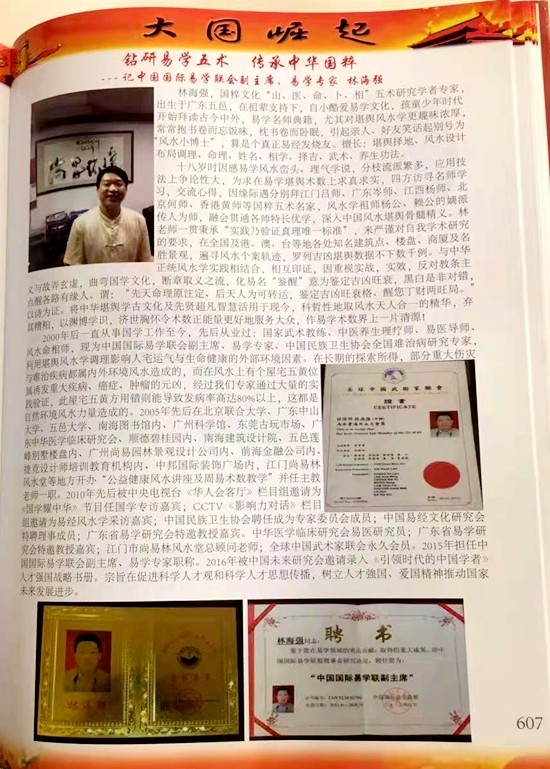 大国崛起
钻研易学五术 传承中华国粹
---记中国国际易学联会副主席、易学专家 林海强
林海强，国粹文化“山、医、命、卜、相”五术研究学者专家，
出生于广东五邑，在祖辈支持下，自小酷爱易学文化，孩童少年时代
开始拜读古今中外，易学名师典籍，尤其对堪舆风水学更趣味浓厚，
常常抱书卷而忘饭味，枕书卷而卧眠，引起亲人、好友笑话起别号为
“风水小博士”，算是个真正易经发烧友。擅长：堪舆择地、风水设计
布局调理、命理、姓名、相学、择吉、武术、养生功法。
十八岁时因感易学风水峦头、理气学说，分枝流派繁多，应用技
法上争论性大，为求在易学堪舆术数上求真求实，四方访寻名师学
习，交流心得，因缘际遇分别拜江门吕师、广东岑师、江西杨师、北
京何师、香港黄师等国粹五术名家，风水学祖师杨公、赖公的嫡派
传人为师，融会贯通各师特长优学，深入中国风水堪舆骨髓精义。林
老师一贯秉承“实践乃验证真理唯一标准”，来严谨对自我学术研究
的要求，在全国及港、澳、台等地各处知名建筑点、楼盘、商厦及名
胜景观，遍寻风水个案轨迹，罗列吉凶堪舆数据不下数千例。与中华
正统风水学实践相结合，相互印证，因重视实战，实效，反对教条主
义与故弄玄虚，曲弯国学文化，断章取义之流，化易名“鉴醒”意为鉴定吉凶旺衰，黑白是非对错，
点醒各路有缘人。谓：“先天命理原注定，后天人为可转运，鉴定吉凶旺衰格、醒您丁财两旺局。”
以诗为证。将中华堪舆学古文化及先贤超凡智慧活用于现今，科哲性地取风水天人合一的精华，弃
其糟粕，以渊博学识，济世胸怀令术数正能量更好地服务大众，作易学术数界上一片清源！
2000年后一直从事国学工作至今，先后从业过：国家武术教练，中医养生理疗师、易医导师、
风水命相师，现为中国国际易学联会副主席、易学专家、中国民族卫协会全国难治病研究专家，
利用堪舆风水学调理影响人宅运气与生命健康的外部环境因素。在长期的探索所得，部分重大伤灾
与难治疾病都属内外环境风水造成的，而在风水上有个屋宅五黄位
属诱发重大疾病、癌症、肿瘤的元凶，经过我们专家通过大量的实
践验证，此屋宅五黄方用错则能导致发病率高达80%以上，这都是
自然环境风水力量造成的。2005年先后在北京联合大学、广东中山
大学、五邑大学、南海图书馆内、广州科学馆、东莞古玩市场、广
东中华医学临床研究会、顺德碧桂园内、南海建筑设计院、五邑莲
峰别墅楼盘内、广州尚易园林景观设计公司内、前海金融公司内、
捷克设计师培训教育机构内、中邦国际装饰广场内，江门尚易林
风水堂等地方开办“公益健康风水讲座及周易术数教学”并任主教
老师一职。2010年先后被中央电视台《华人会客厅》栏目组邀请为
《国学耀中华》节目任国学专访嘉宾；CCTV《影响力对话》栏目
组邀请为易经风水学采访嘉宾；中国民族卫生协会聘任成为专家委员会成员；中国易经文化研究会
特聘理事成员；广东省易学研究会特邀教授嘉宾。中华医学临床研究会易医研究员；广东省易学研
究会特邀教授嘉宾；江门市尚易林风水堂总顾问老师；全球中国武术家联会永久会员。2015年担任中
国国际易学联会副主席、易学专家职称。2016年被中国未来研究会邀请录入《引领时代的中国学者》
人才强国战略书册。宗旨在促进科学人才观和科学人才思想传播，树立人才強国、爱国精神推动国家
未来发展进步。
全球中國武術家聯會
證書
CERTIFICATE
聘书
林海强同志：
“中国国际易学联副主席”
607